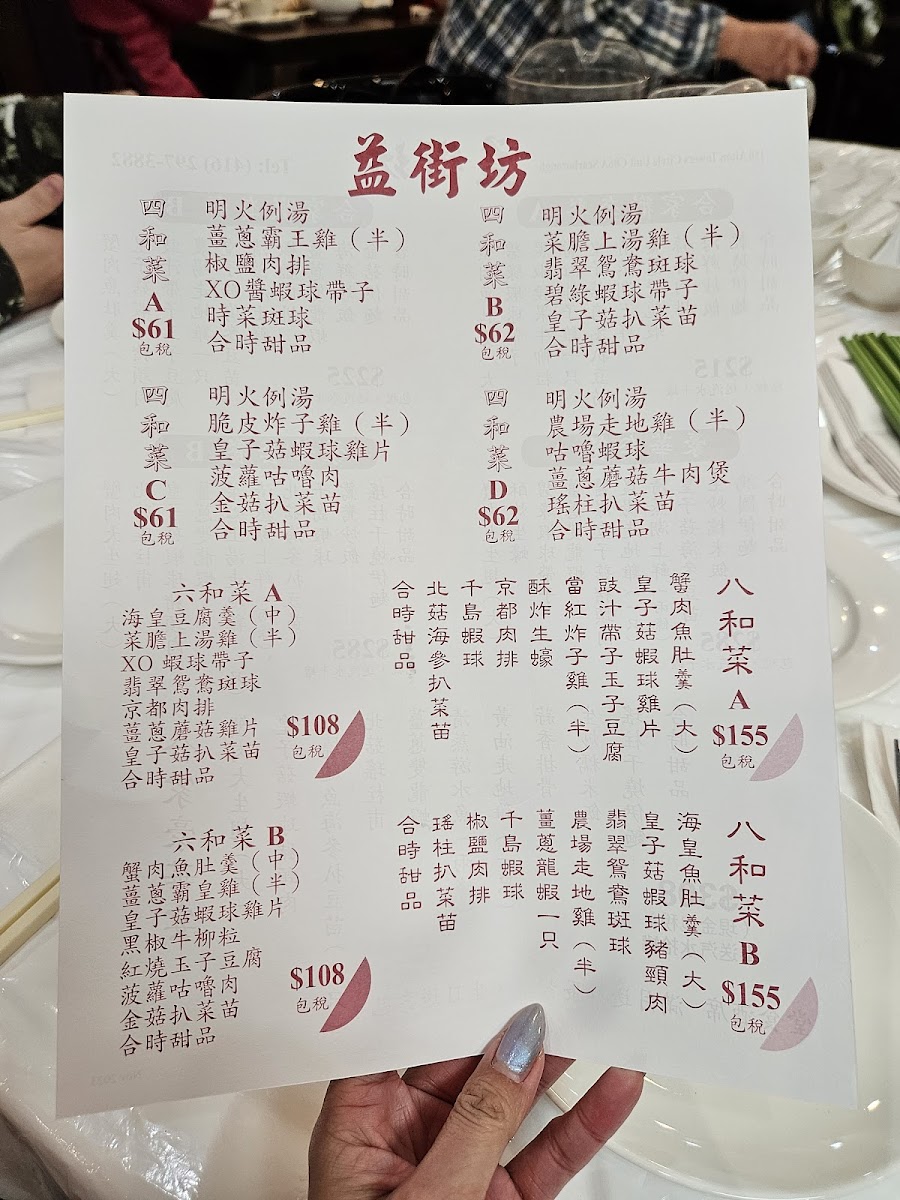 益街坊
四和菜
A
$61
包稅
明火例湯
薑蔥霸王雞（半）
椒鹽肉排
XO醬蝦球帶子
時菜斑球
合時甜品
四和菜
B
$62
包稅
明火例湯
菜膽上湯雞（半）
翡翠鴛鴦斑球
碧綠蝦球帶子
皇子菇扒菜苗
合時甜品
四和菜
C
$61
包稅
明火例湯
脆皮炸子雞（半）
皇子菇蝦球雞片
菠蘿咕嚕肉
金菇扒菜苗
合時甜品
四和菜
D
$62
包稅
明火例湯
農場走地雞（半）
咕嚕蝦球
薑蔥蘑菇牛肉煲
瑤柱扒菜苗
合時甜品
六和菜 A
海皇豆腐羹（中）
菜膽上湯雞（半）
XO 蝦球帶子
翡翠鴛鴦斑球
京都肉排
薑蔥蘑菇雞片
皇子菇扒菜苗
合時甜品
$108
包稅
八和菜
A
$155
包稅
蟹肉魚肚羹（大）
皇子菇蝦球雞片
豉汁帶子玉子豆腐
當紅炸子雞（半）
酥炸生蠔
京都肉排
千島蝦球
北菇海參扒菜苗
合時甜品
六和菜 B
蟹肉魚肚羹（中）
薑蔥霸皇雞（半）
皇子菇蝦球雞片
黑椒牛柳粒
紅燒玉子豆腐
菠蘿咕嚕肉
金菇扒菜苗
合時甜品
$108
包稅
八和菜
B
$155
包稅
海皇魚肚羹（大）
皇子菇蝦球豬頸肉
翡翠鴛鴦斑球
農場走地雞（半）
薑蔥龍蝦一只
千島蝦球
椒鹽肉排
瑤柱扒菜苗
合時甜品